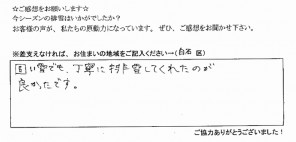 ☆ご感想をお願いします☆
今シーズンの排雪はいかがでしたか？
お客様の声が、私たちの原動力になっています。ぜひ、ご感想をお聞かせ下さい。
※差支えなければ、お住まいの地域をご記入ください→(白石 区)
重い雪でも、丁寧に排雪してくれたのが
良かったです。
ご協力ありがとうございました！